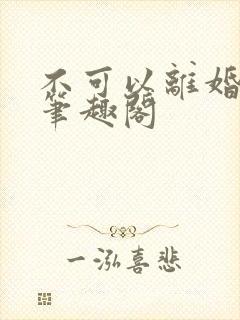 不可以離婚
筆趣閣
一泓喜悲